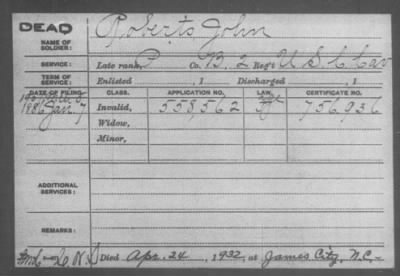 DEAD
NAME OF SOLDIER: Roberts John
SERVICE: Late rank P Co. B, 2 Reg't U S C Cav
TERM OF SERVICE: Enlisted , 1 Discharged , 1
DATE OF FILING. CLASS. APPLICATION NO. LAW. CERTIFICATE NO.
1886 Jan. 7 Invalid, 558562 756936
Widow,
Minor,
ADDITIONAL SERVICES:
REMARKS:
Died Apr. 24, 1932, at James City, N.C.